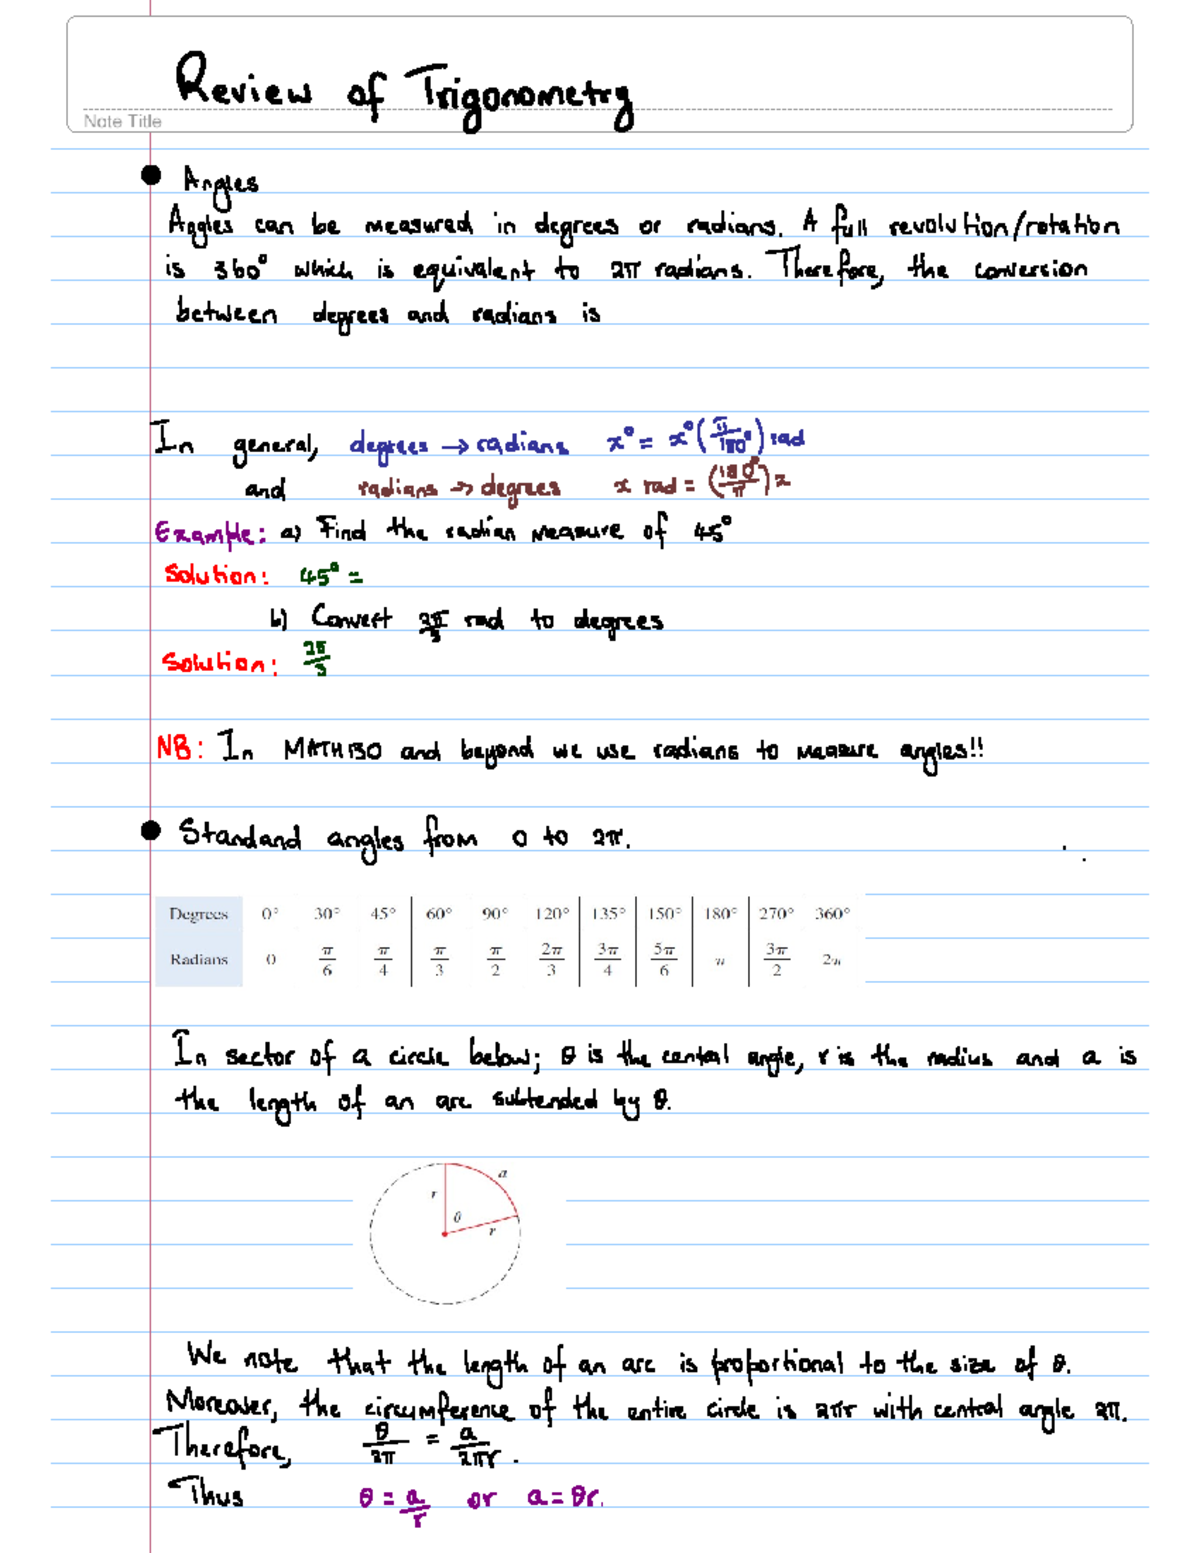 Review of Trigonometry
Note Title
Angles
Angles can be measured in degrees or radians. A full revolution/rotation
is 360° which is equivalent to 2π radians. Therefore, the conversion
between degrees and radians is
In general, degrees → radians x° = x°(π/180°) rad
and radians → degrees x rad = (180°/π)x
Example: a) Find the radian measure of 45°
Solution: 45° =
b) Convert 2π/3 rad to degrees
Solution: 2π/3
NB: In MATH130 and beyond we use radians to measure angles!!
Standard angles from 0 to 2π.
Degrees 0° 30° 45° 60° 90° 120° 135° 150° 180° 270° 360°
Radians 0 π/6 π/4 π/3 π/2 2π/3 3π/4 5π/6 π 3π/2 2π
In sector of a circle below; θ is the central angle, r is the radius and a is
the length of an arc subtended by θ.
a
r
θ
r
We note that the length of an arc is proportional to the size of θ.
Moreover, the circumference of the entire circle is 2πr with central angle 2π.
Therefore, θ/2π = a/2πr.
Thus θ = a/r or a = θr.